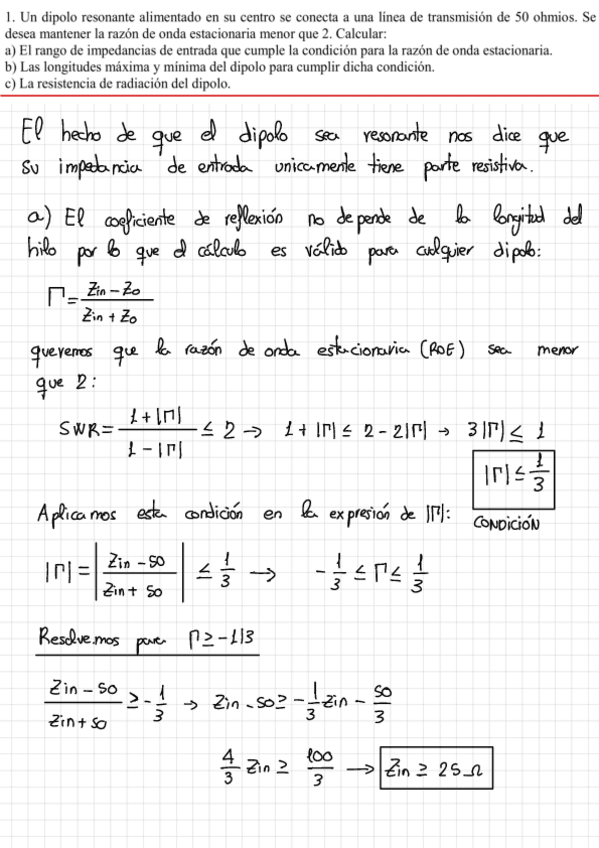 1. Un dipolo resonante alimentado en su centro se conecta a una línea de transmisión de 50 ohmios. Se
desea mantener la razón de onda estacionaria menor que 2. Calcular:
a) El rango de impedancias de entrada que cumple la condición para la razón de onda estacionaria.
b) Las longitudes máxima y mínima del dipolo para cumplir dicha condición.
c) La resistencia de radiación del dipolo.
El hecho de que el dipolo sea resonante nos dice que
su impedancia de entrada unicamente tiene parte resistiva.
a) El coeficiente de reflexión no depende de la longitud del
hilo por lo que el cálculo es válido para cualquier dipolo:
Γ = (Zin - Zo) / (Zin + Zo)
queremos que la razón de onda estacionaria (ROE) sea menor
que 2:
SWR = (1 + |Γ|) / (1 - |Γ|) ≤ 2 → 1 + |Γ| ≤ 2 - 2|Γ| → 3|Γ| ≤ 1
|Γ| ≤ 1/3
Aplicamos esta condición en la expresión de |Γ|: CONDICIÓN
|Γ| = |(Zin - 50) / (Zin + 50)| ≤ 1/3 → -1/3 ≤ Γ ≤ 1/3
Resolvemos para Γ ≥ -1/3
(Zin - 50) / (Zin + 50) ≥ -1/3 → Zin - 50 ≥ -1/3 Zin - 50/3
4/3 Zin ≥ 100/3 → Zin ≥ 25 Ω